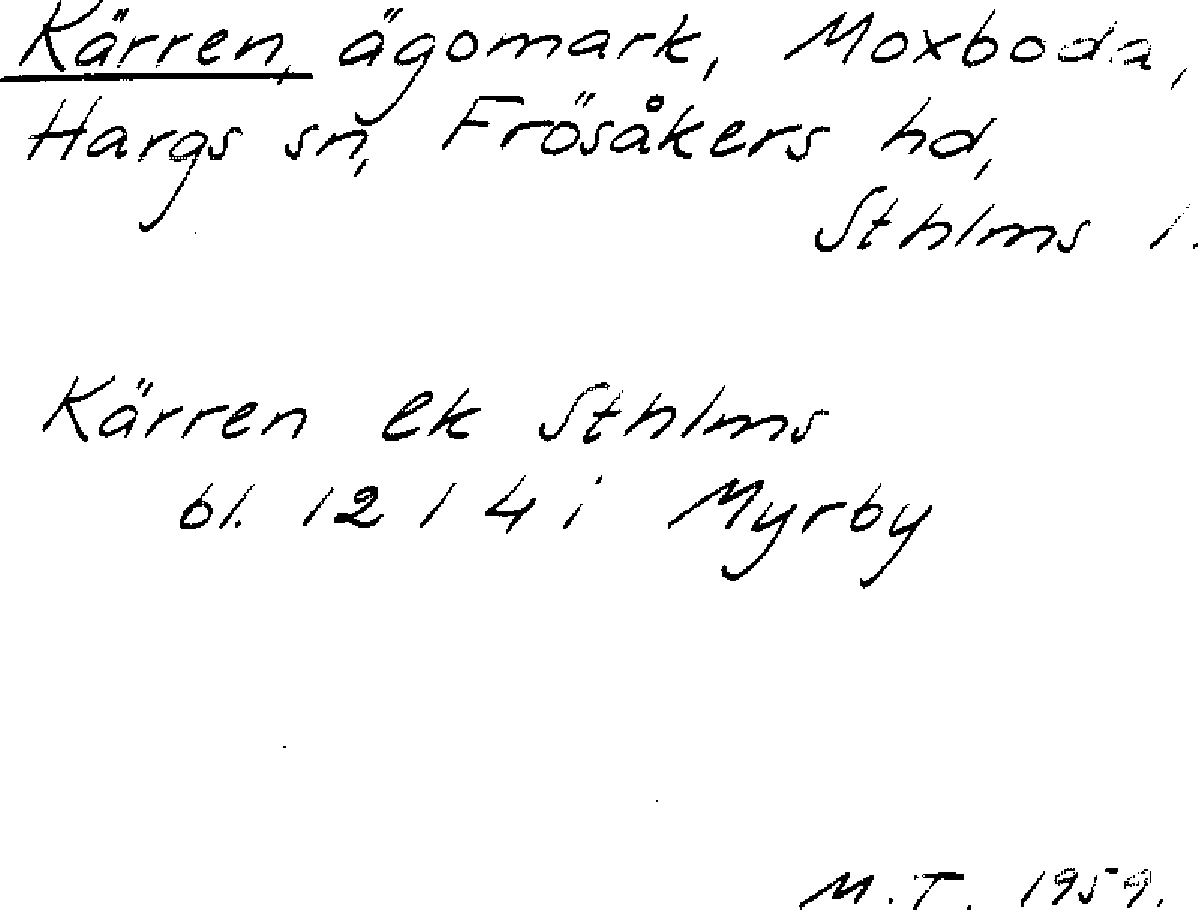 Kärren, ägomark, Moxboda,
Hargs sn, Frösåkers hd,
Sthlms l.
Kärren ek Sthlms
bl. 12 I 4 i Myrby
M.T. 1959.